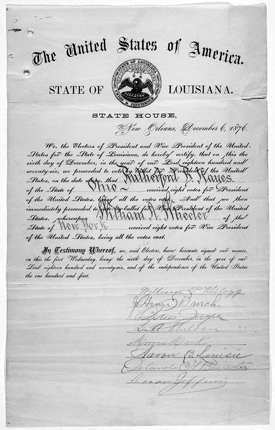 The United States of America.
STATE OF LOUISIANA.
STATE HOUSE,
New Orleans, December 6, 1876.
We, the Electors of President and Vice President of the United
States for the State of Louisiana, do hereby certify, that on this the
sixth day of December, in the year of our Lord eighteen hundred and
seventy-six, we proceeded to vote of the United
States, on the date that Rutherford B. Hayes
of the State of Ohio received eight votes for President
of the United States, being all the votes cast. And that we then
immediately proceeded to Vice President of the United
States, whereupon William A. Wheeler of the
State of New York received eight votes for Vice President
of the United States, being all the votes cast.
In Testimony Whereof, we, said Electors, have hereunto signed our names,
on this the first Wednesday, being the sixth day of December, in the year of our
Lord eighteen hundred and seventy-six, and of the independence of the United States
the one hundred and first.
Peter Joseph
Morris Marks
Aaron B. Levissee
Oscar Joffrion